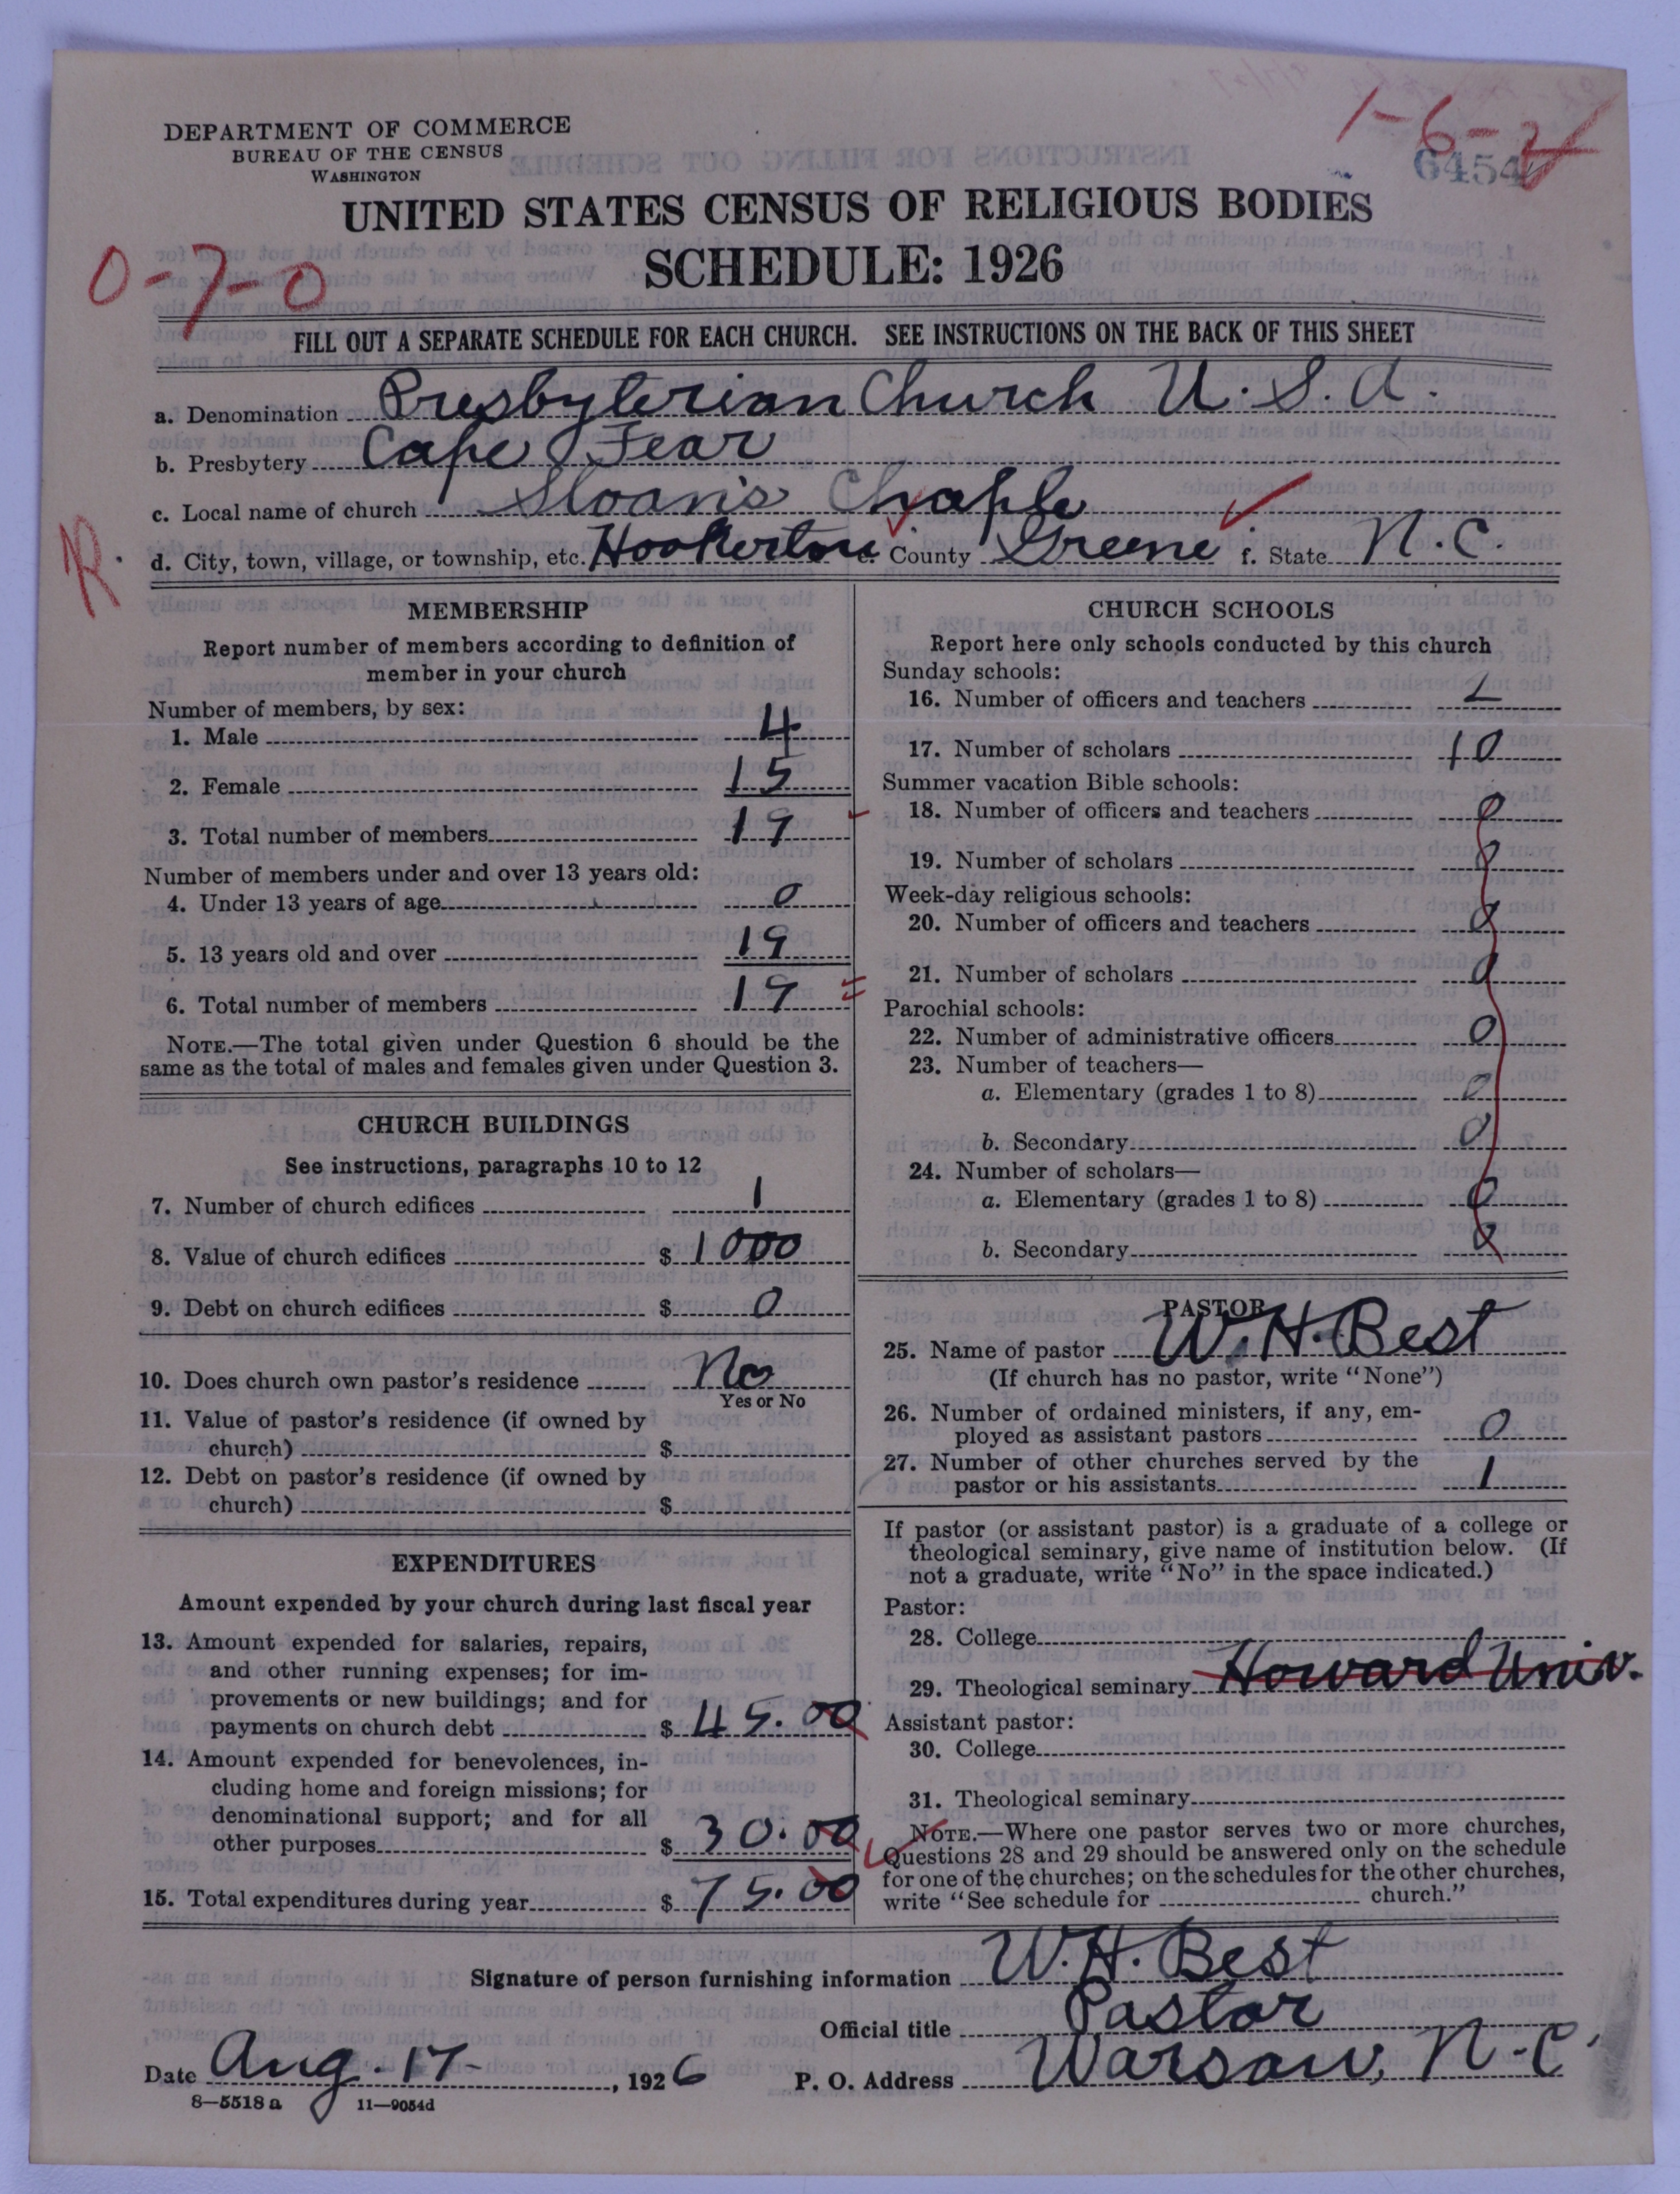 1-6-2
6454
DEPARTMENT OF COMMERCE
BUREAU OF THE CENSUS
WASHINGTON
UNITED STATES CENSUS OF RELIGIOUS BODIES
SCHEDULE: 1926
0-7-0
FILL OUT A SEPARATE SCHEDULE FOR EACH CHURCH. SEE INSTRUCTIONS ON THE BACK OF THIS SHEET
a. Denomination Presbyterian Church U.S.A.
b. Presbytery Cape Fear
c. Local name of church Sloan's Chaple
R.
d. City, town, village, or township, etc. Hookerton e. County Greene f. State N.C.
MEMBERSHIP
Report number of members according to definition of
member in your church
Number of members, by sex:
1. Male 4
2. Female 15
3. Total number of members 19
Number of members under and over 13 years old:
4. Under 13 years of age 0
5. 13 years old and over 19
6. Total number of members 19
NOTE.—The total given under Question 6 should be the
same as the total of males and females given under Question 3.
CHURCH BUILDINGS
See instructions, paragraphs 10 to 12
7. Number of church edifices 1
8. Value of church edifices $ 1000
9. Debt on church edifices $ 0
10. Does church own pastor's residence No
Yes or No
11. Value of pastor's residence (if owned by
church) $
12. Debt on pastor's residence (if owned by
church) $
EXPENDITURES
Amount expended by your church during last fiscal year
13. Amount expended for salaries, repairs,
and other running expenses; for im-
provements or new buildings; and for
payments on church debt $ 45.00
14. Amount expended for benevolences, in-
cluding home and foreign missions; for
denominational support; and for all
other purposes $ 30.00
15. Total expenditures during year $ 75.00
CHURCH SCHOOLS
Report here only schools conducted by this church
Sunday schools:
16. Number of officers and teachers
17. Number of scholars 10
Summer vacation Bible schools:
18. Number of officers and teachers 0
19. Number of scholars 0
Week-day religious schools:
20. Number of officers and teachers 0
21. Number of scholars 0
Parochial schools:
22. Number of administrative officers 0
23. Number of teachers—
a. Elementary (grades 1 to 8) 0
b. Secondary 0
24. Number of scholars—
a. Elementary (grades 1 to 8) 0
b. Secondary 0
PASTOR
25. Name of pastor W. H. Best
(If church has no pastor, write "None")
26. Number of ordained ministers, if any, em-
ployed as assistant pastors 0
27. Number of other churches served by the
pastor or his assistants 1
If pastor (or assistant pastor) is a graduate of a college or
theological seminary, give name of institution below. (If
not a graduate, write "No" in the space indicated.)
Pastor:
28. College
29. Theological seminary Howard Univ.
Assistant pastor:
30. College
31. Theological seminary
NOTE.—Where one pastor serves two or more churches,
Questions 28 and 29 should be answered only on the schedule
for one of the churches; on the schedules for the other churches,
write "See schedule for church."
Signature of person furnishing information W. H. Best
Official title Pastor
Date Aug. 17- , 1926 P. O. Address Warsaw, N.C.
8—5518 a 11—9054d